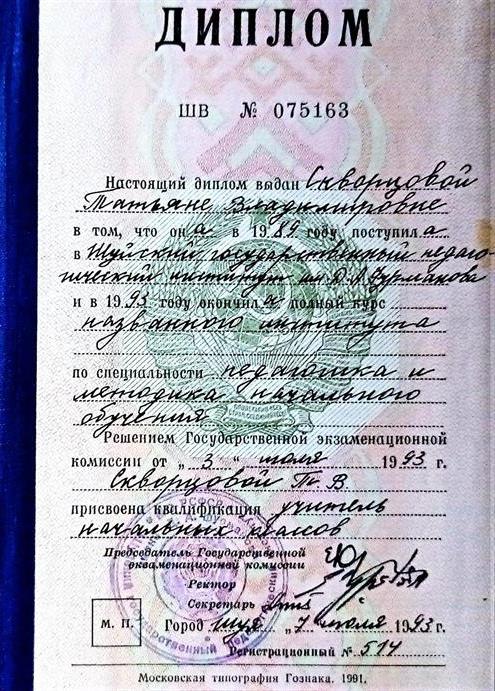 ДИПЛОМ
ШВ № 075163
Настоящий диплом выдан Скворцовой
Татьяне Владимировне
в том, что он а в 1989 году поступил а
в Шуйский государственный педаго-
гический институт им Д.А.Фурманова
и в 1993 году окончил а полный курс
названного института
по специальности педагогика и
методика начального
обучения
Решением Государственной экзаменационной
комиссии от „ 3 “ июля 1993 г.
Скворцовой Т. В
присвоена квалификация учитель
начальных классов
Председатель Государственной
экзаменационной комиссии
Ректор
Секретарь
М. П.
Город Шуя „ 7 “ июля 1993 г.
Регистрационный № 514
Московская типография Гознака. 1991.